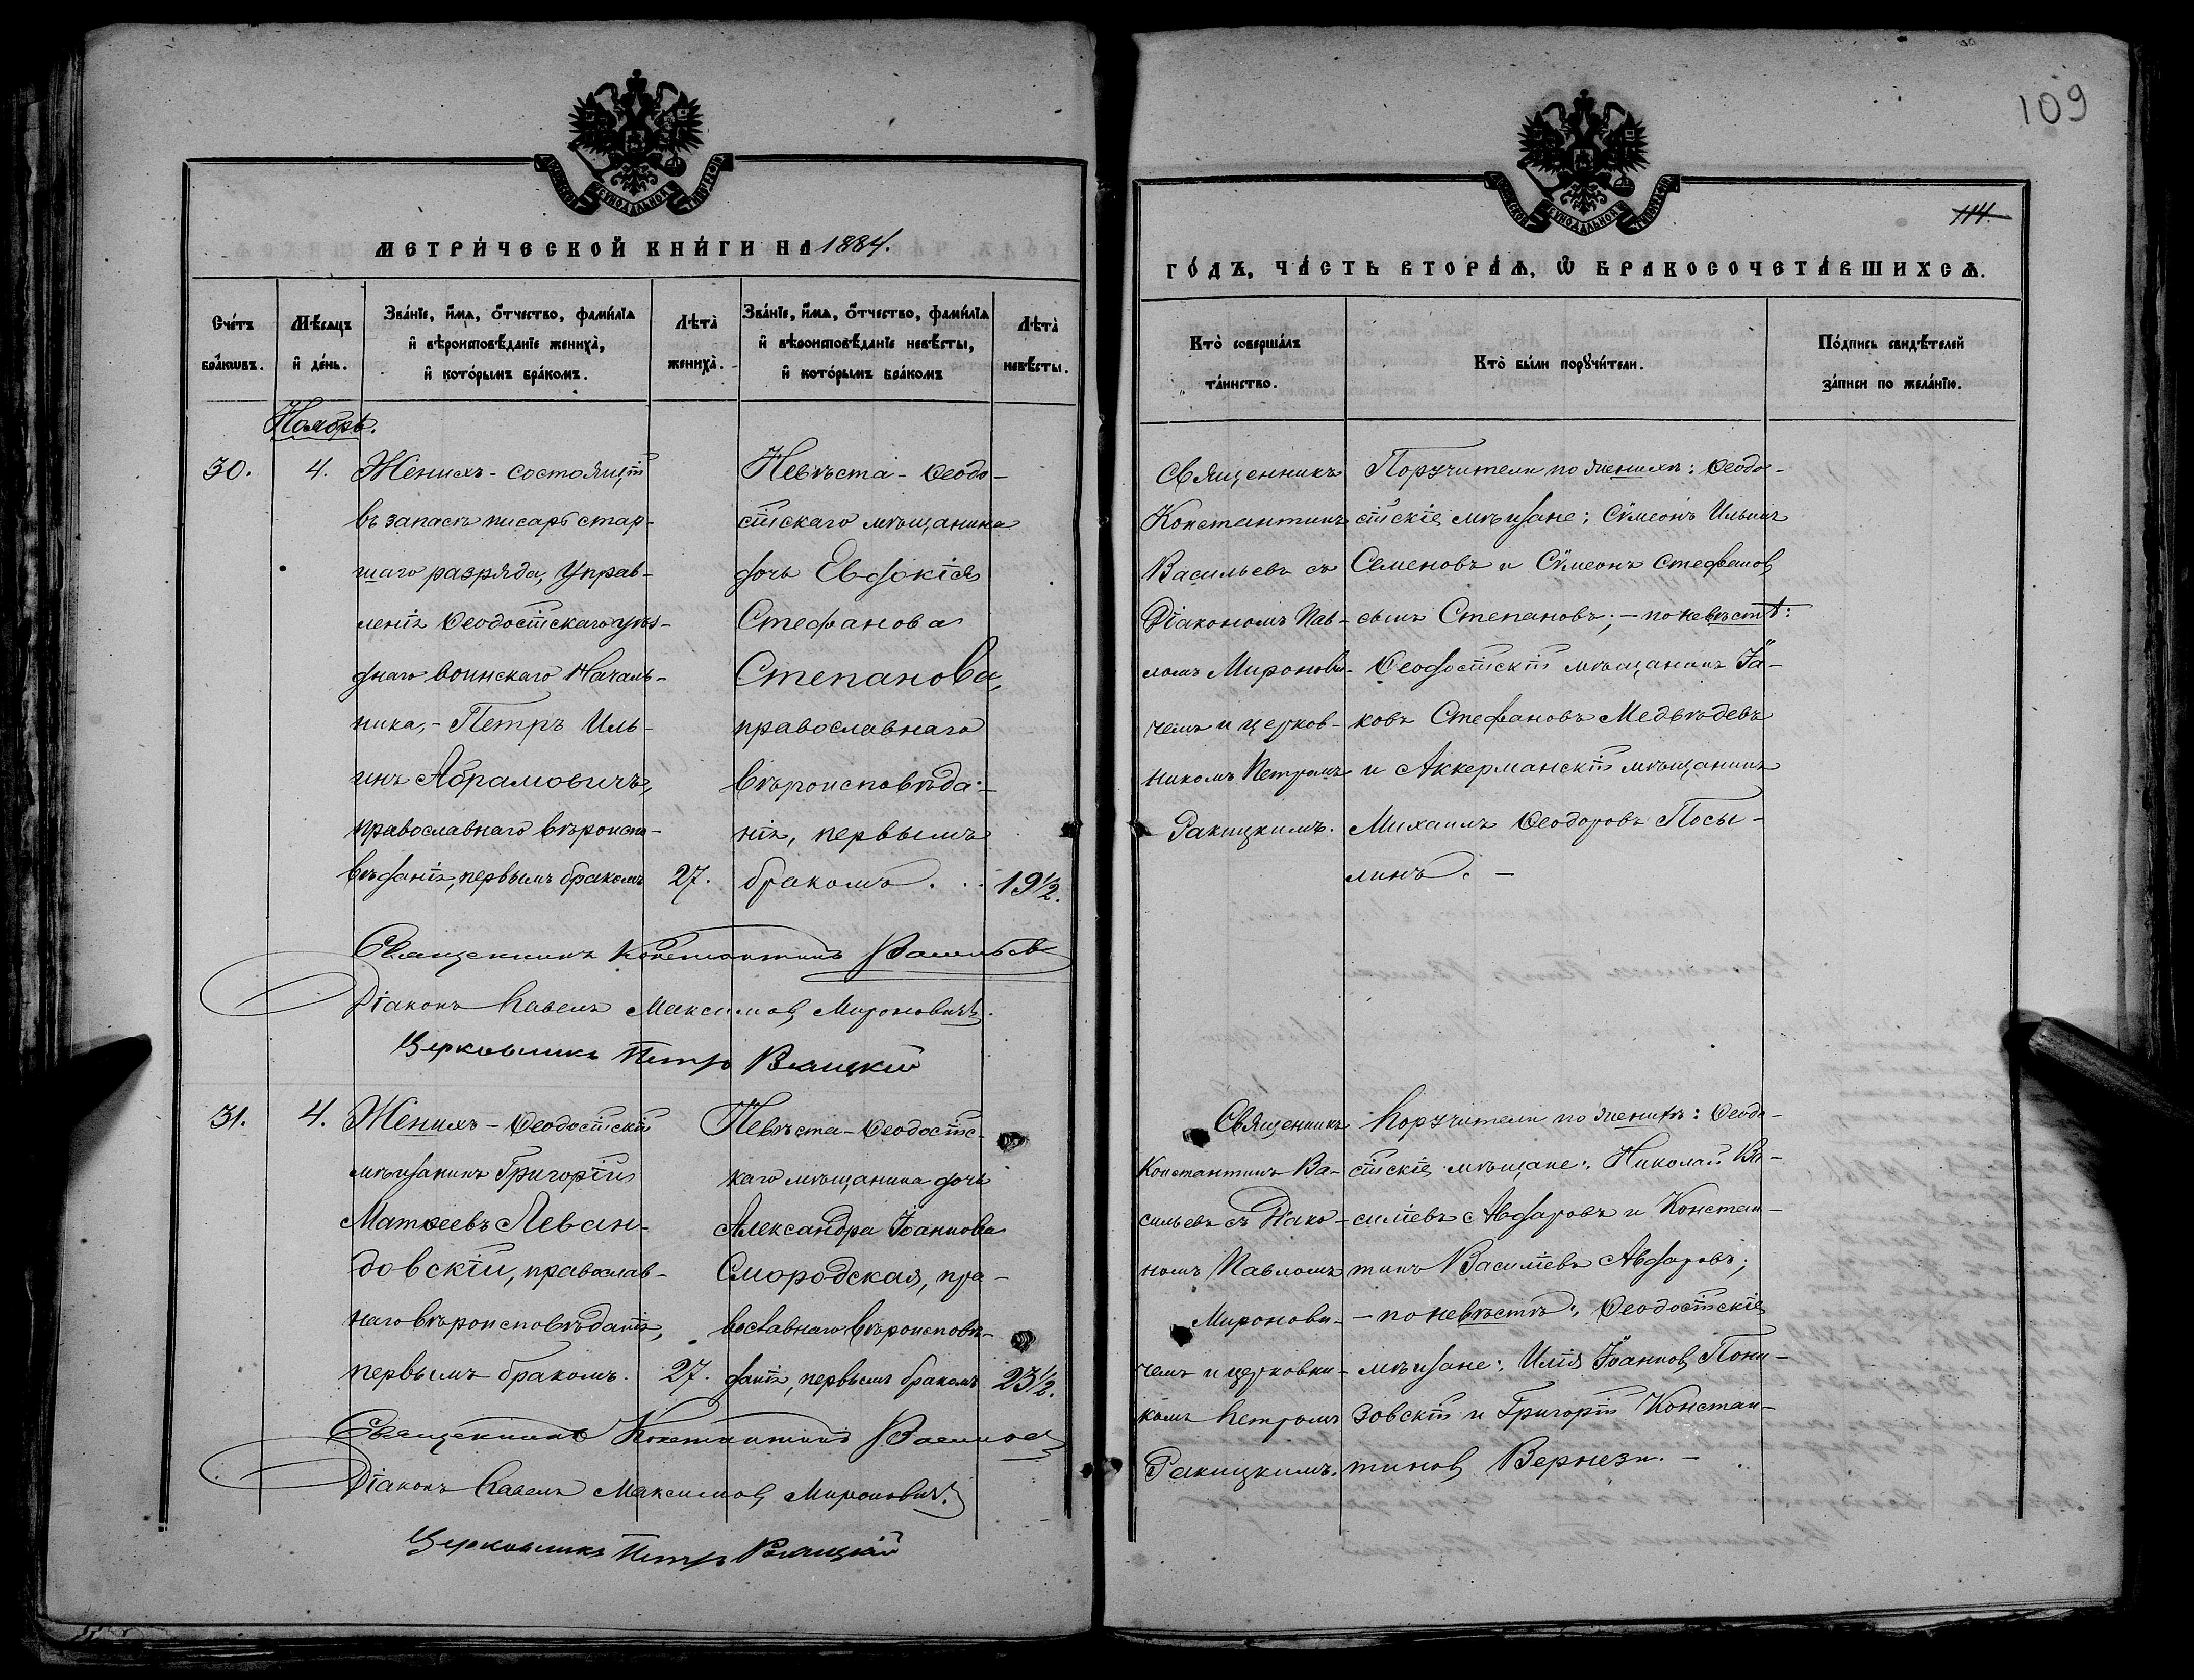 МОСКОВСКОЙ СѴНОДАЛЬНОЙ ТИПОГРАФІИ
МЕТРИЧЕСКОЙ КНИГИ НА 1884.
Счетъ браковъ.
Мѣсяцъ и день.
Званіе, имя, отчество, фамилія
и вѣроисповѣданіе жениха,
и которымъ бракомъ.
Лѣта жениха.
Званіе, имя, отчество, фамилія
и вѣроисповѣданіе невѣсты,
и которымъ бракомъ
Лѣта невѣсты.
Ноябрь.
30.
4.
Женихъ - состоящій
въ запасѣ писарь стар-
шаго разряда, Управ-
ленія Ѳеодосійскаго уѣз-
днаго воинскаго Началь-
ника, - Петръ Иль-
инъ Абрамовичъ,
православнаго вѣроиспо-
вѣданія, первымъ бракомъ
27.
Невѣста - Ѳеодо-
сійскаго мѣщанина
дочь Евдокія
Стефанова
Степанова,
православнаго
вѣроисповѣда-
нія, первымъ
бракомъ.
19½.
Священникъ Константинъ Васильевъ
Діаконъ Павелъ Максимовъ Мироновичъ.
Церковникъ Петръ Ракицкій
31.
4.
Женихъ - Ѳеодосійскій
мѣщанинъ Григорій
Матѳеевъ Леван-
довскій, православ-
наго вѣроисповѣданія,
первымъ бракомъ.
27.
Невѣста - Ѳеодосійс-
каго мѣщанина дочь
Александра Іоаннова
Смородская, пра-
вославнаго вѣроисповѣ-
данія, первымъ бракомъ
23½.
Священникъ Константинъ Васильевъ
Діаконъ Павелъ Максимовъ Мироновичъ.
Церковникъ Петръ Ракицкій
109
МОСКОВСКОЙ СѴНОДАЛЬНОЙ ТИПОГРАФІИ
114.
ГОДЪ, ЧАСТЬ ВТОРАЯ, Ѡ БРАКОСОЧЕТАВШИХСЯ.
Кто совершалъ таинство.
Кто были поручители.
Подпись свидѣтелей
записи по желанію.
Священникъ
Константинъ
Васильевъ съ
Діакономъ Пав-
ломъ Миронови-
чемъ и церков-
никомъ Петромъ
Ракицкимъ.
Поручители по женихѣ: Ѳеодо-
сійскіе мѣщане: Сѵмеонъ Ильинъ
Семеновъ и Сѵмеонъ Стефановъ
сынъ Степановъ; - по невѣстѣ:
Ѳеодосійскій мѣщанинъ Іа-
ковъ Стефановъ Медвѣдевъ
и Аккерманскій мѣщанинъ
Михаилъ Ѳеодоровъ Посы-
линъ. -
Священникъ
Константинъ Ва-
сильевъ съ Діако-
номъ Павломъ
Миронови-
чемъ и церковни-
комъ Петромъ
Ракицкимъ.
Поручители по женихѣ: Ѳеодо-
сійскіе мѣщане: Николай Ва-
силіевъ Авдаровъ и Констан-
тинъ Василіевъ Авдаровъ;
- по невѣстѣ: Ѳеодосійскіе
мѣщане: Илія Іоанновъ Пони-
зовскій и Григорій Констан-
тиновъ Вернези. -